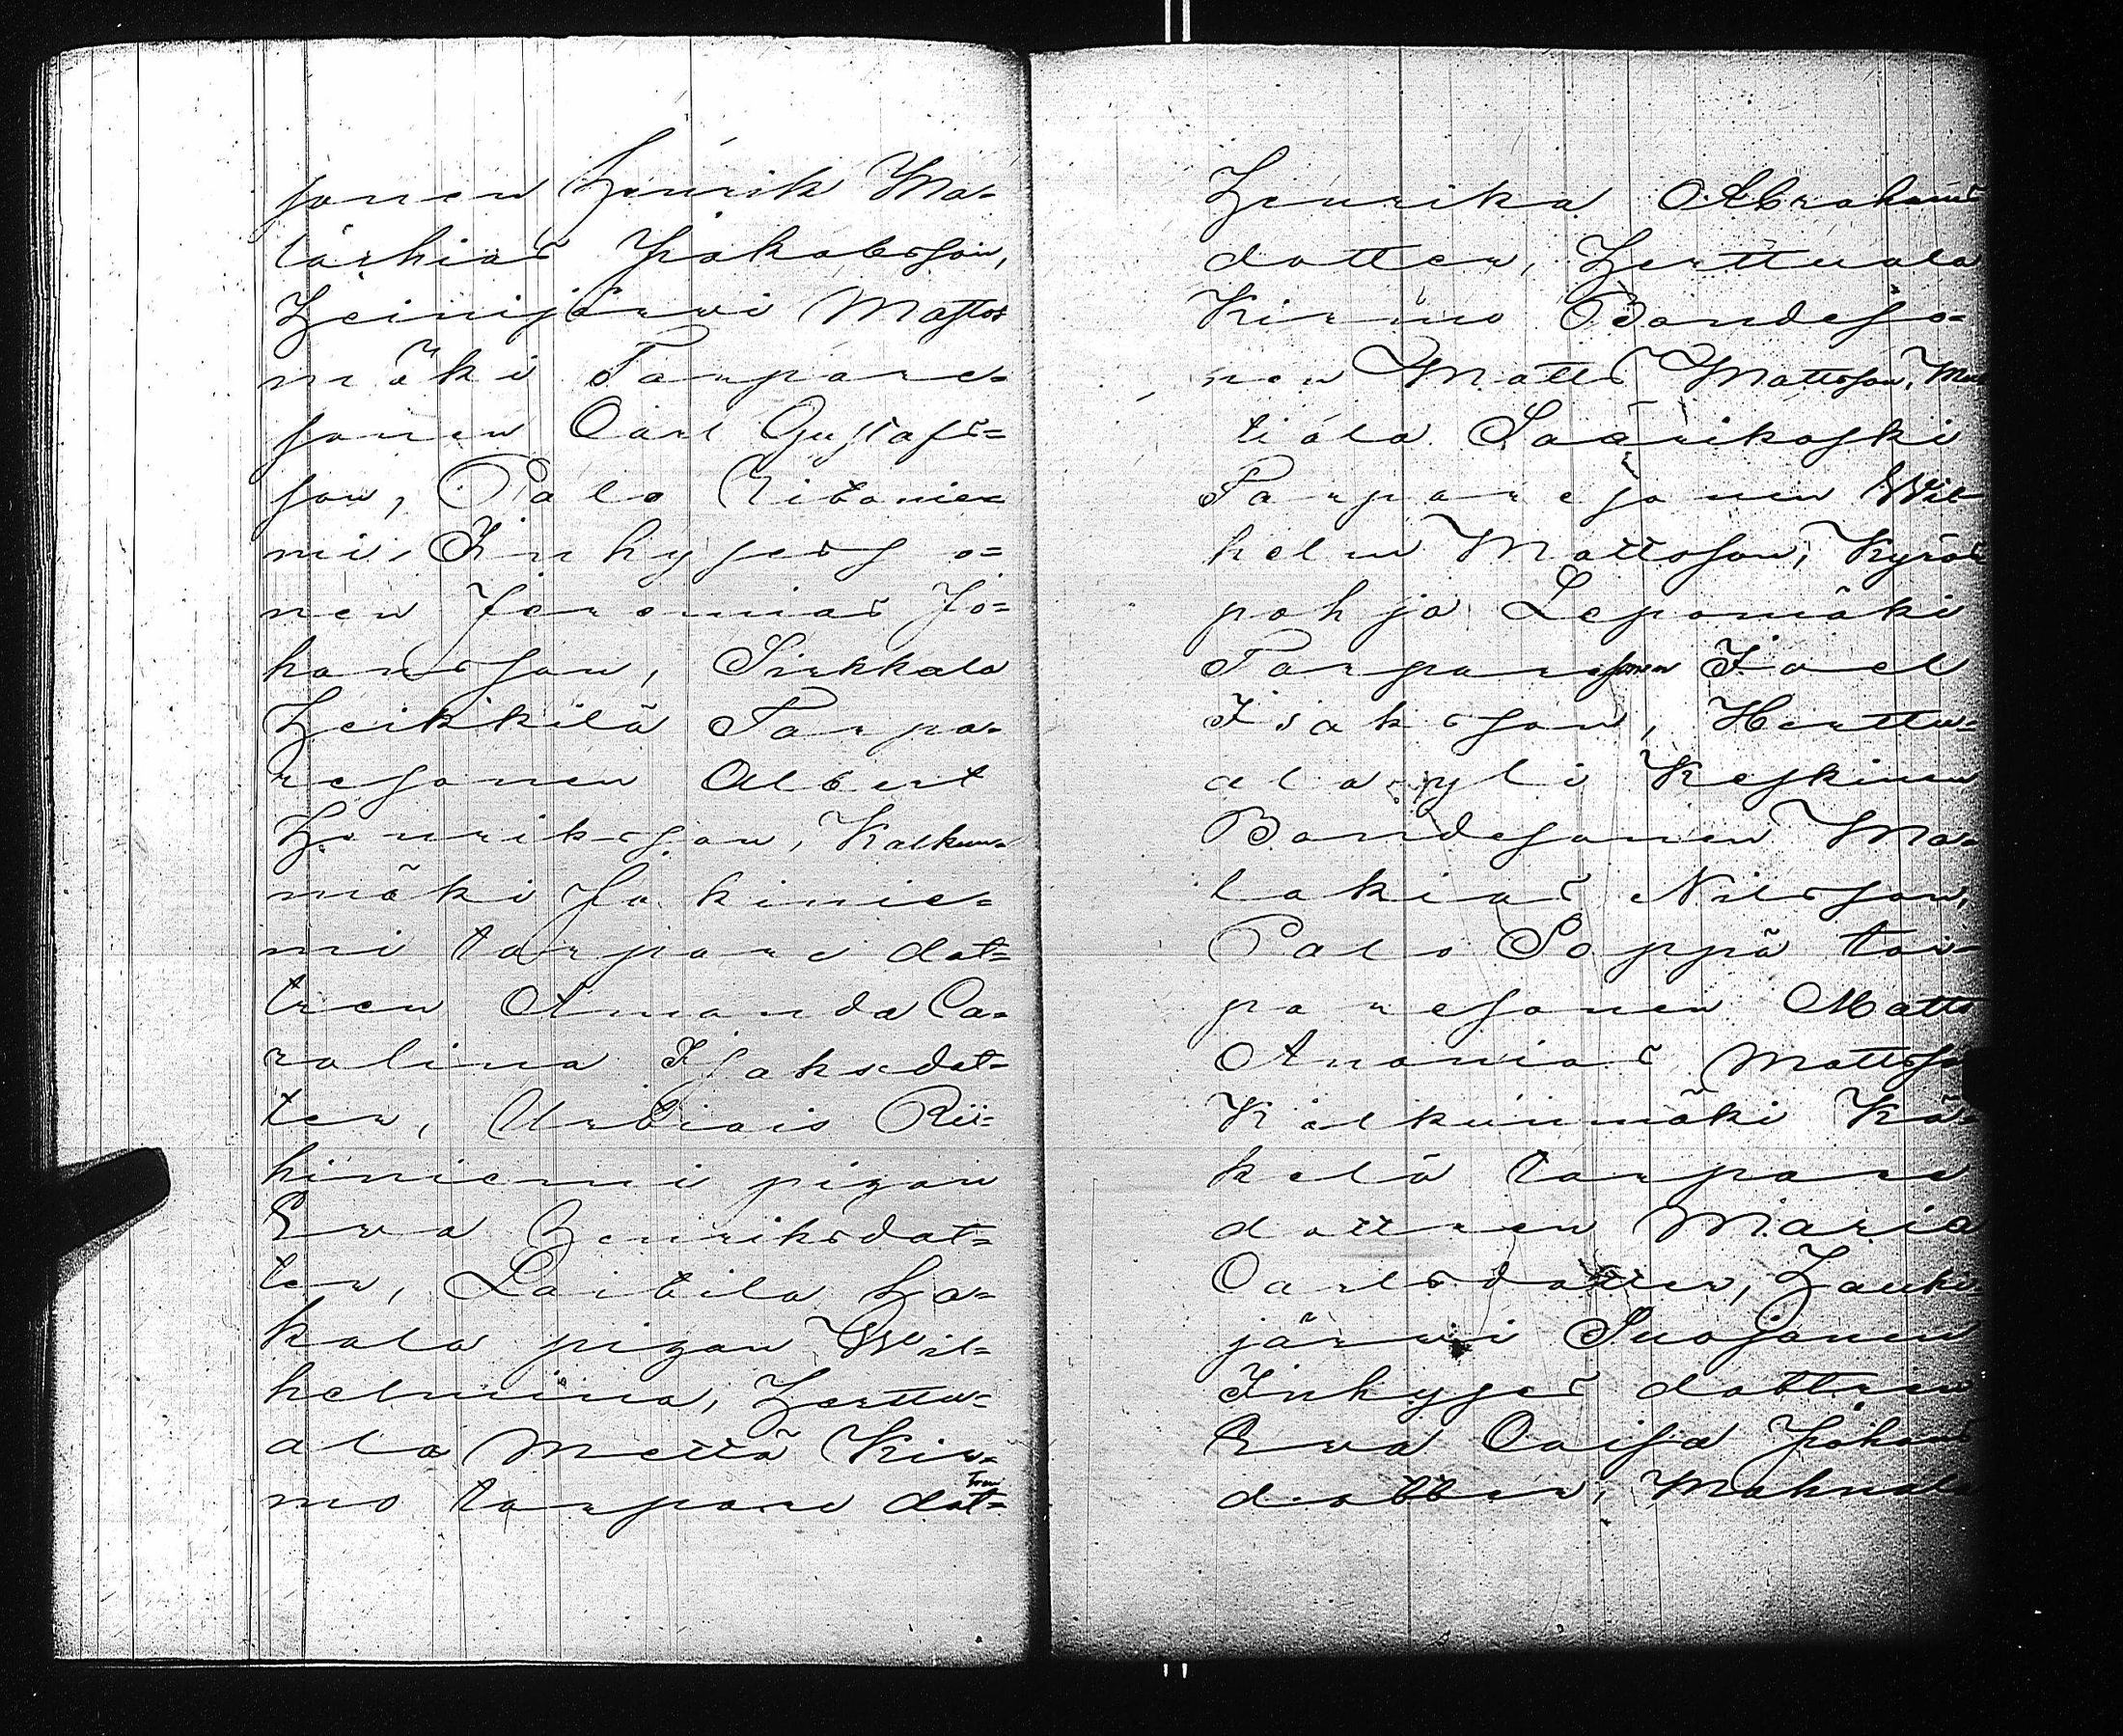 sonen Henrik Ma-
tärhias Jakobsson,
Heinijärwi Mattos
mäki Torpare-
sonen Carl Gustafs=
son, Palo Ritonie=
mi, Inhysesso=
nen Jeremias Jo=
hansson, Sirkkala
Heikkilä Torpa-
resonen Albert
Henriksson, Kalkun-
mäki Jokinie=
mi torpare dot=
tren Amanda Ca-
rolina Isaksdot=
ter, Urbiais Rii=
hiniemi pigan
Eva Henriksdot=
ter, Laitila Ha=
kala pigan Wil=
helmina, Herttu=
ala Mettä Kir=
mo torpare dot= tren
Henrika Abrahams
dotter, Herttuala
Kirmo Bondeso=
nen Matts Mattsson, Mat
tiala Saarikoski
Torparesonen Wil-
helm Mattsson, Kyrös
pohja Lepomäki
Torparesonen Joel
Isaksson, Herttu=
ala yli Keskinen
Bondesonen Ma-
lakias Nilsson,
Palo Soppä tor-
paresonen Matts
Ananias Mattsso
Kalkunmäki Kä-
kelä torpare
dottren Maria
Carlsdotter, Hauki-
järwi Suojanen
Inhyses dottren
Eva Caisa Johans
dotter, Mahnala